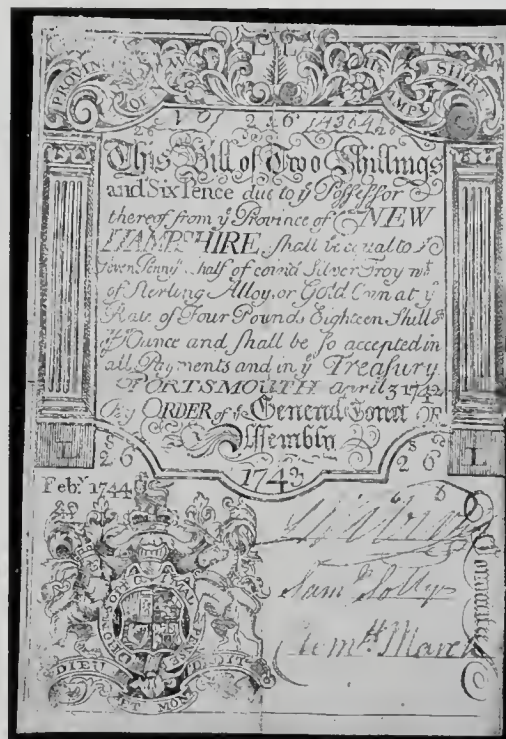 PROVINCE OF NEW HAMPSHIRE
2 6 14364
This Bill of Two Shillings
and Six Pence due to yͤ Possessor
thereof from yͤ Province of NEW
HAMPSHIRE, shall be equal to
seven Pennyͭ half of coin'd Silver Troy wͭ
of Sterling Alloy, or Gold Coin at yͤ
Rate of Four Pounds Eighteen Shillˢ
Ounce and shall be so accepted in
all Payments and in yͤ Treasury.
PORTSMOUTH April 3 1742
By ORDER of yͤ General Court or
Assembly
L S 2 6 1743 S 2 6 L
Febʸ 1744
Committee
Samˡ Solley
Clemͭ March
HONI SOIT QUI MAL Y PENSE
DIEU ET MON DROIT